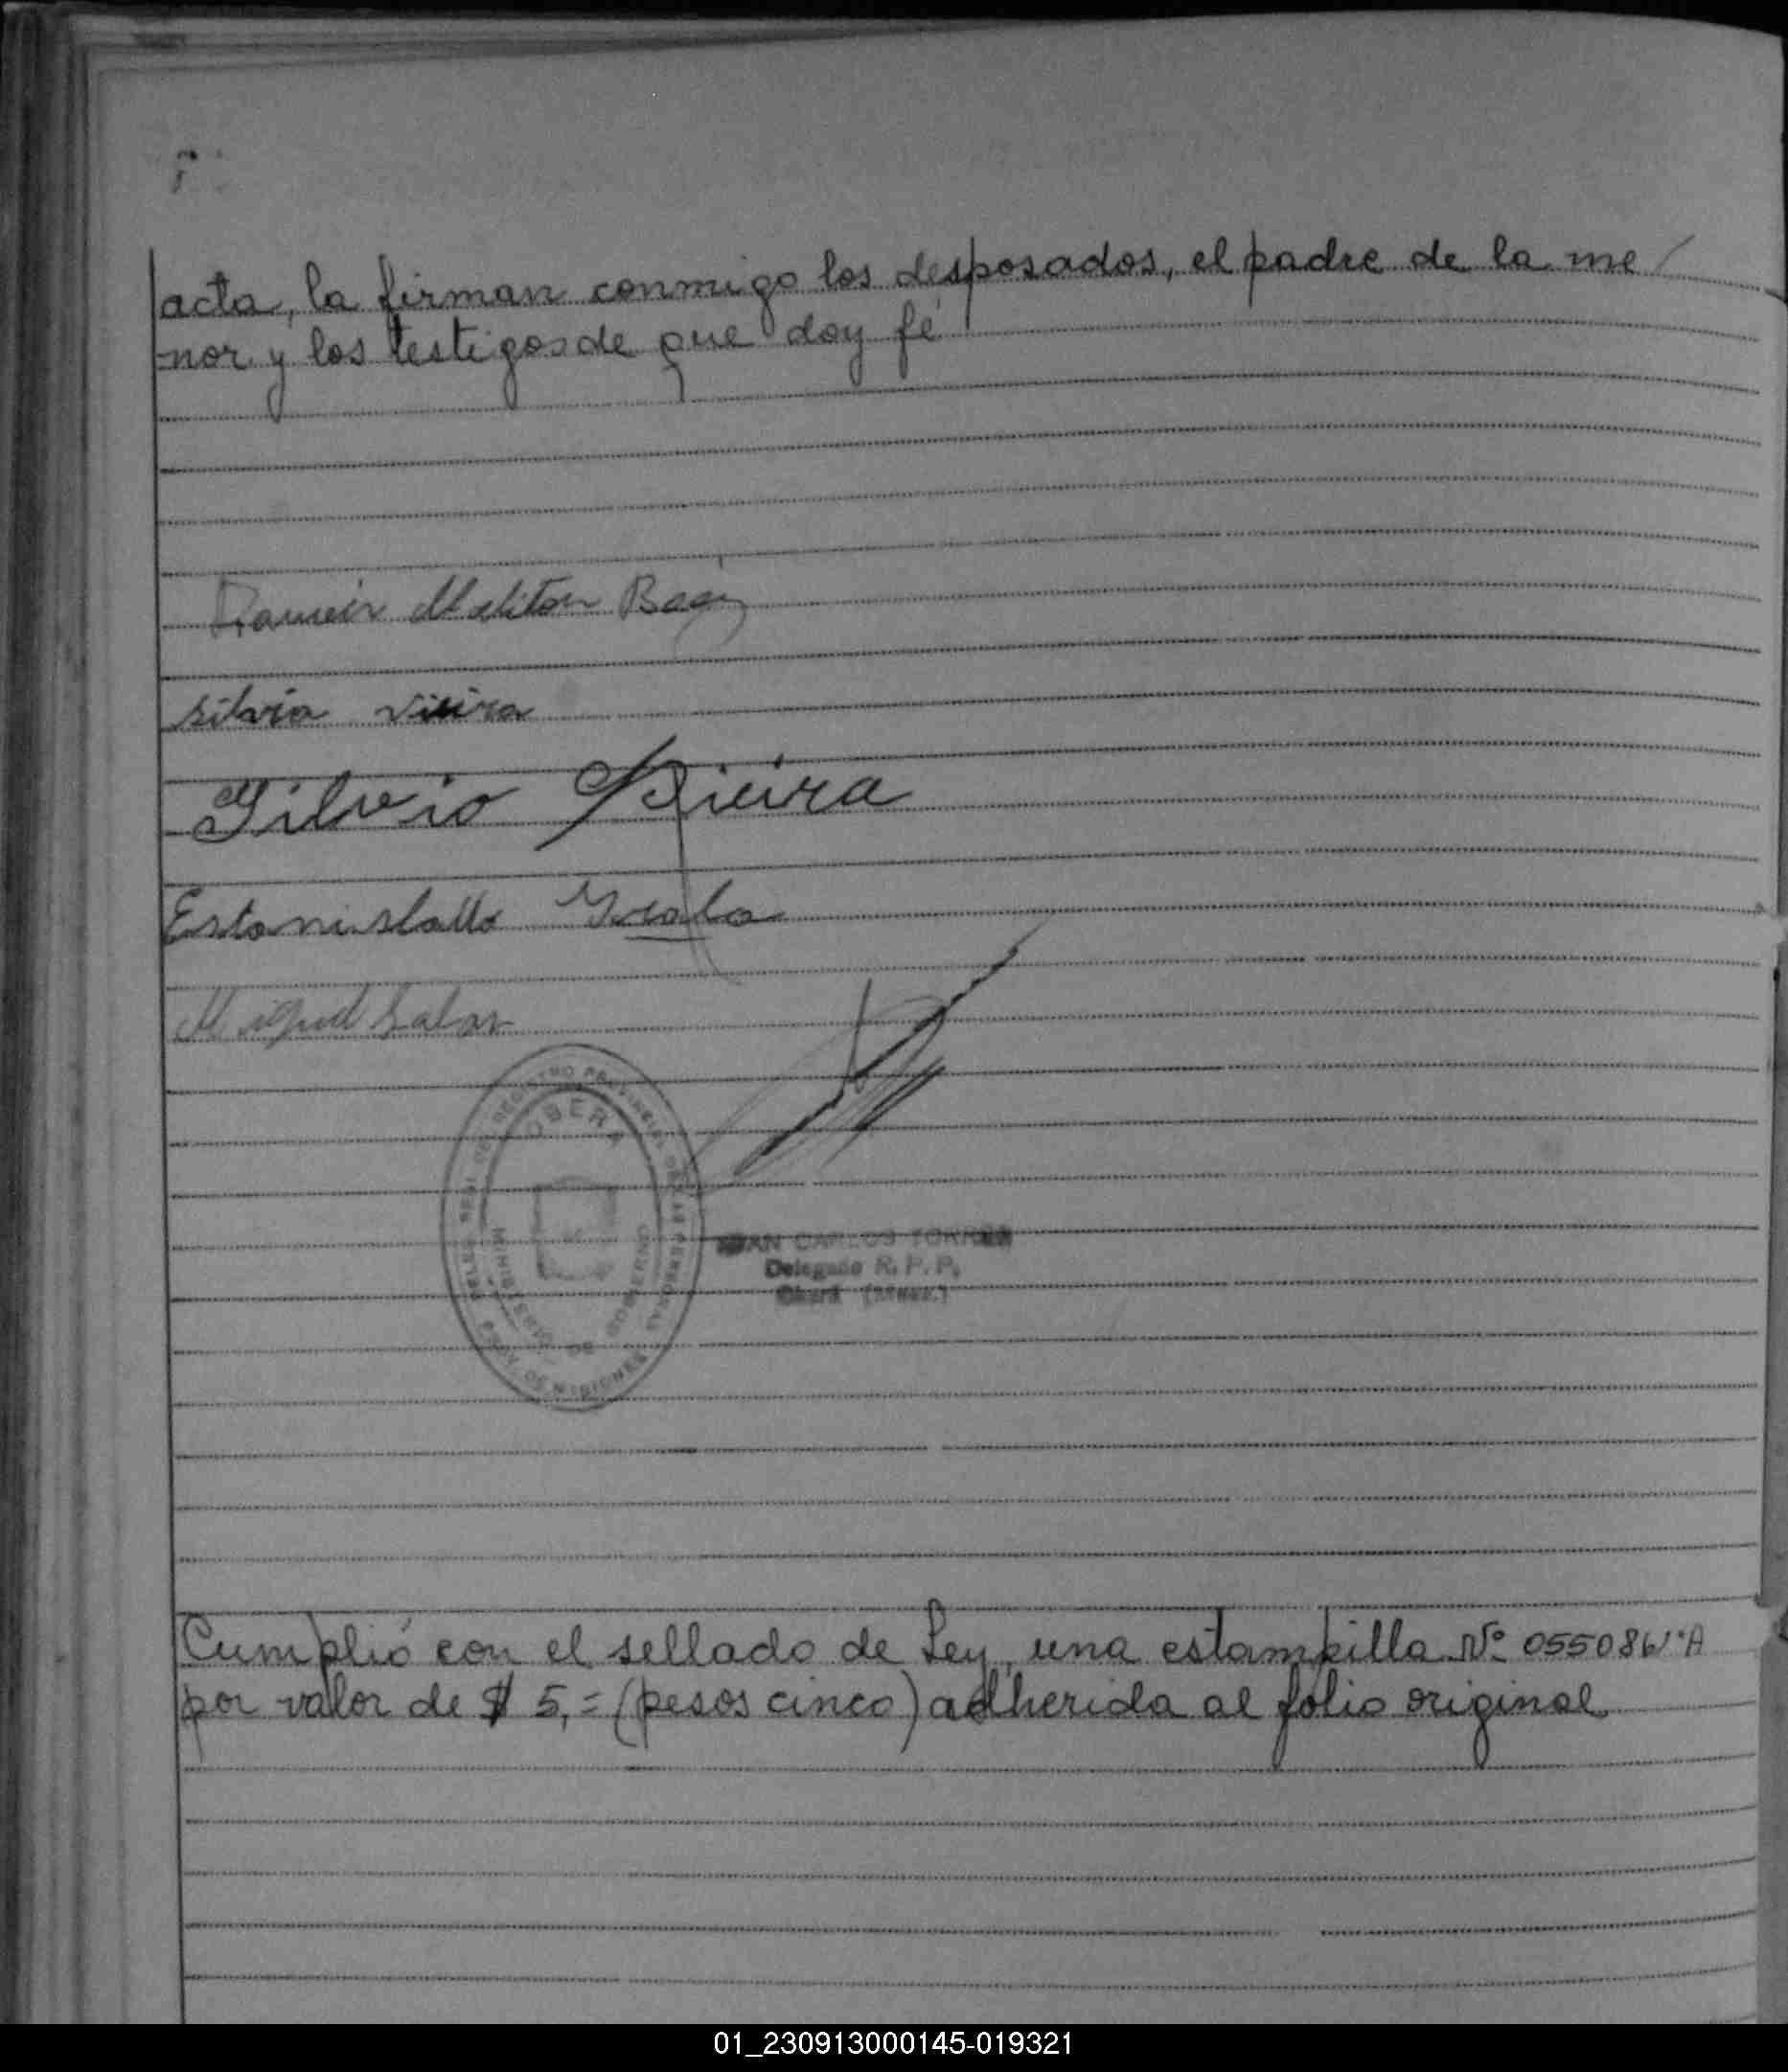 acta, la firman conmigo los desposados, el padre de la me/
=nor y los testigos de que doy fé
Ramón Meliton Baez
silvia vieira
Silvio Vieira
Estanislallo
Miguel
REGISTRO PROVINCIAL DE LAS PERSONAS
OBERA
MINISTERIO DE GOBIERNO
PROV. DE MISIONES
JUAN CARLOS TORRES
Delegado R. P. P.
Oberá (Mnes.)
Cumplió con el sellado de Ley, una estampilla Nº 055086 A
por valor de $ 5,= (pesos cinco) adherida al folio original
01_230913000145-019321